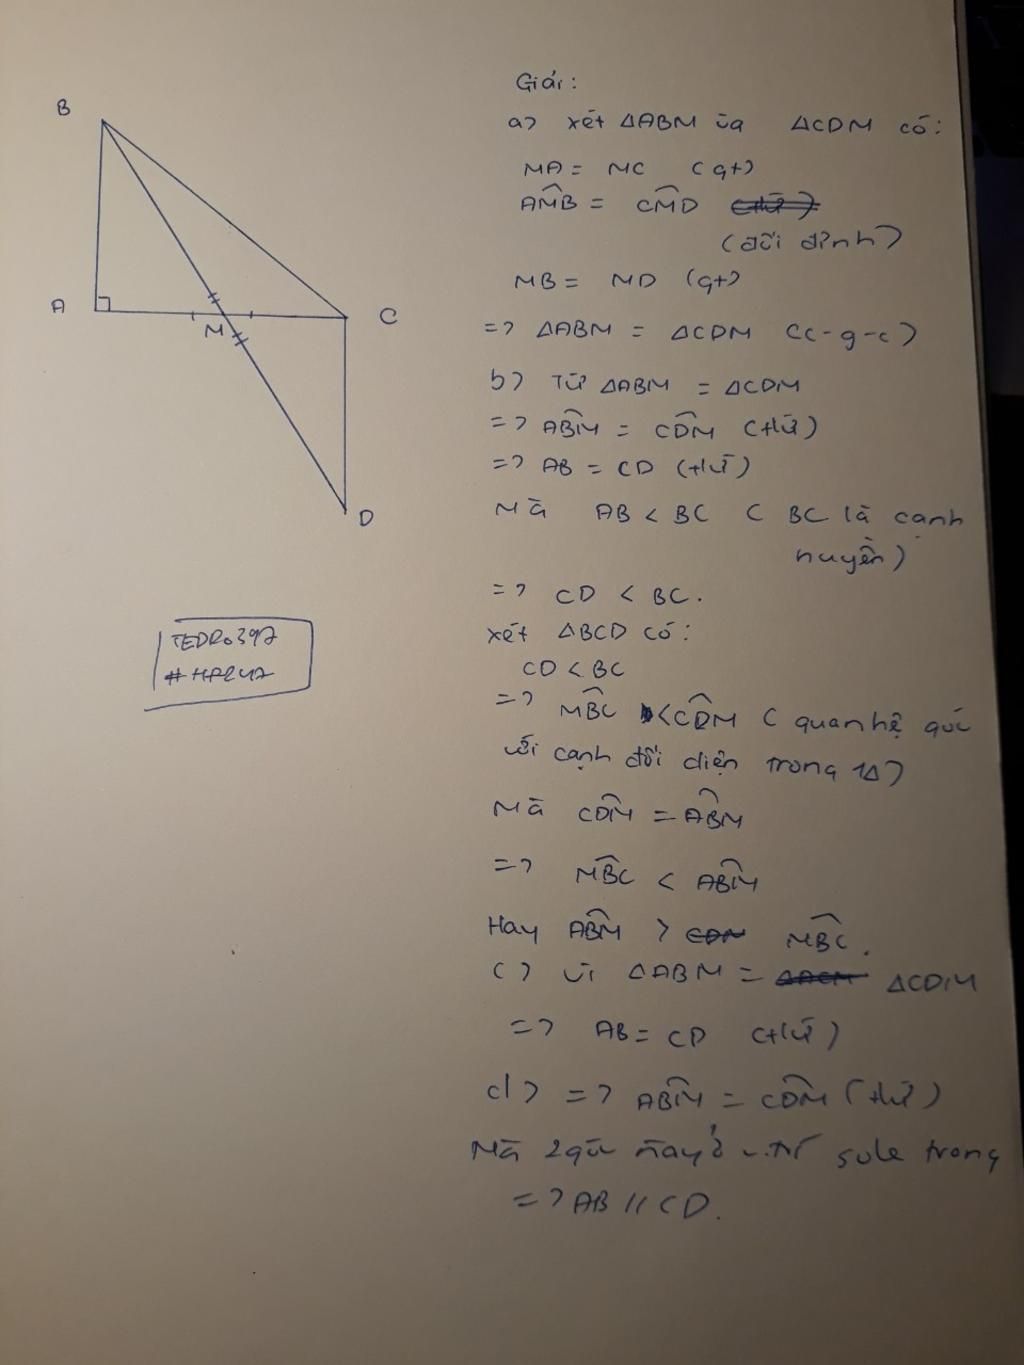 B
A
M
C
D
TEDRo397
Giải:
a) xét ΔABM và ΔCDM có:
MA = MC (gt)
AMB = CMD
(đối đỉnh)
MB = MD (gt)
=> ΔABM = ΔCDM (c-g-c)
b) Từ ΔABM = ΔCDM
=> ABM = CDM (tứ)
=> AB = CD (tứ)
Mà AB < BC ( BC là cạnh
huyền)
=> CD < BC.
xét ΔBCD có:
CD < BC
=> MBC < CDM ( quan hệ góc
với cạnh đối diện trong 1Δ)
Mà CDM = ABM
=> MBC < ABM
Hay ABM > MBC.
c) vì ΔABM = ΔCDM
=> AB = CD (tứ)
d) => ABM = CDM (tứ)
Mà 2 góc này ở v.trí sole trong
=> AB // CD.